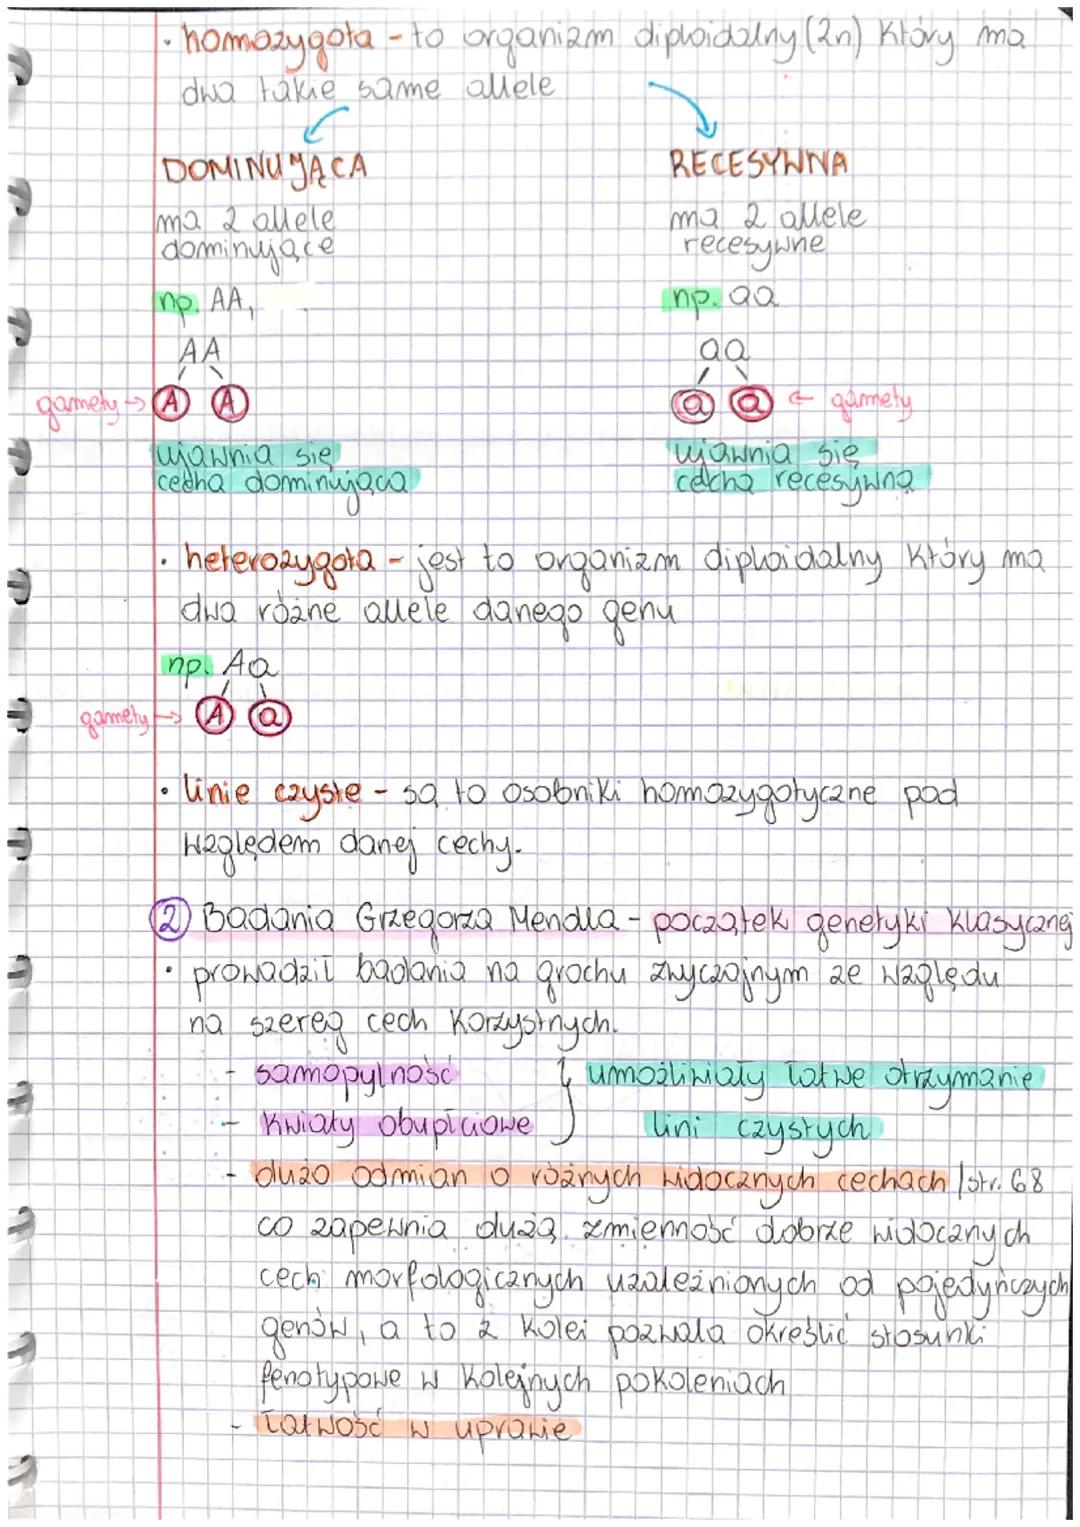 • homozygota - to organizm diploidalny (2n) który ma
dwa takie same allele
DOMINUJĄCA
RECESYWNA
ma 2 allele
dominujące
ma 2 allele
recesywne
np. AA,
np. aa
AA
aa
gamety → A A
a a ← gamety
ujawnia się
cecha dominująca
ujawnia się
cecha recesywna
• heterozygota - jest to organizm diploidalny który ma
dwa różne allele danego genu
np. Aa
gamety → A a
• linie czyste - są to osobniki homozygotyczne pod
względem danej cechy.
2 Badania Grzegorza Mendla - początek genetyki klasycznej
• prowadził badania na grochu zwyczajnym ze względu
na szereg cech korzystnych.
- samopylność } umożliwiały łatwe otrzymanie
- kwiaty obupłciowe lini czystych
- dużo odmian o różnych widocznych cechach /str. 68
co zapewnia dużą zmienność dobrze widocznych
cech morfologicznych uzależnionych od pojedyńczych
genów, a to z kolei pozwala określić stosunki
fenotypowe w kolejnych pokoleniach
- łatwość w uprawie